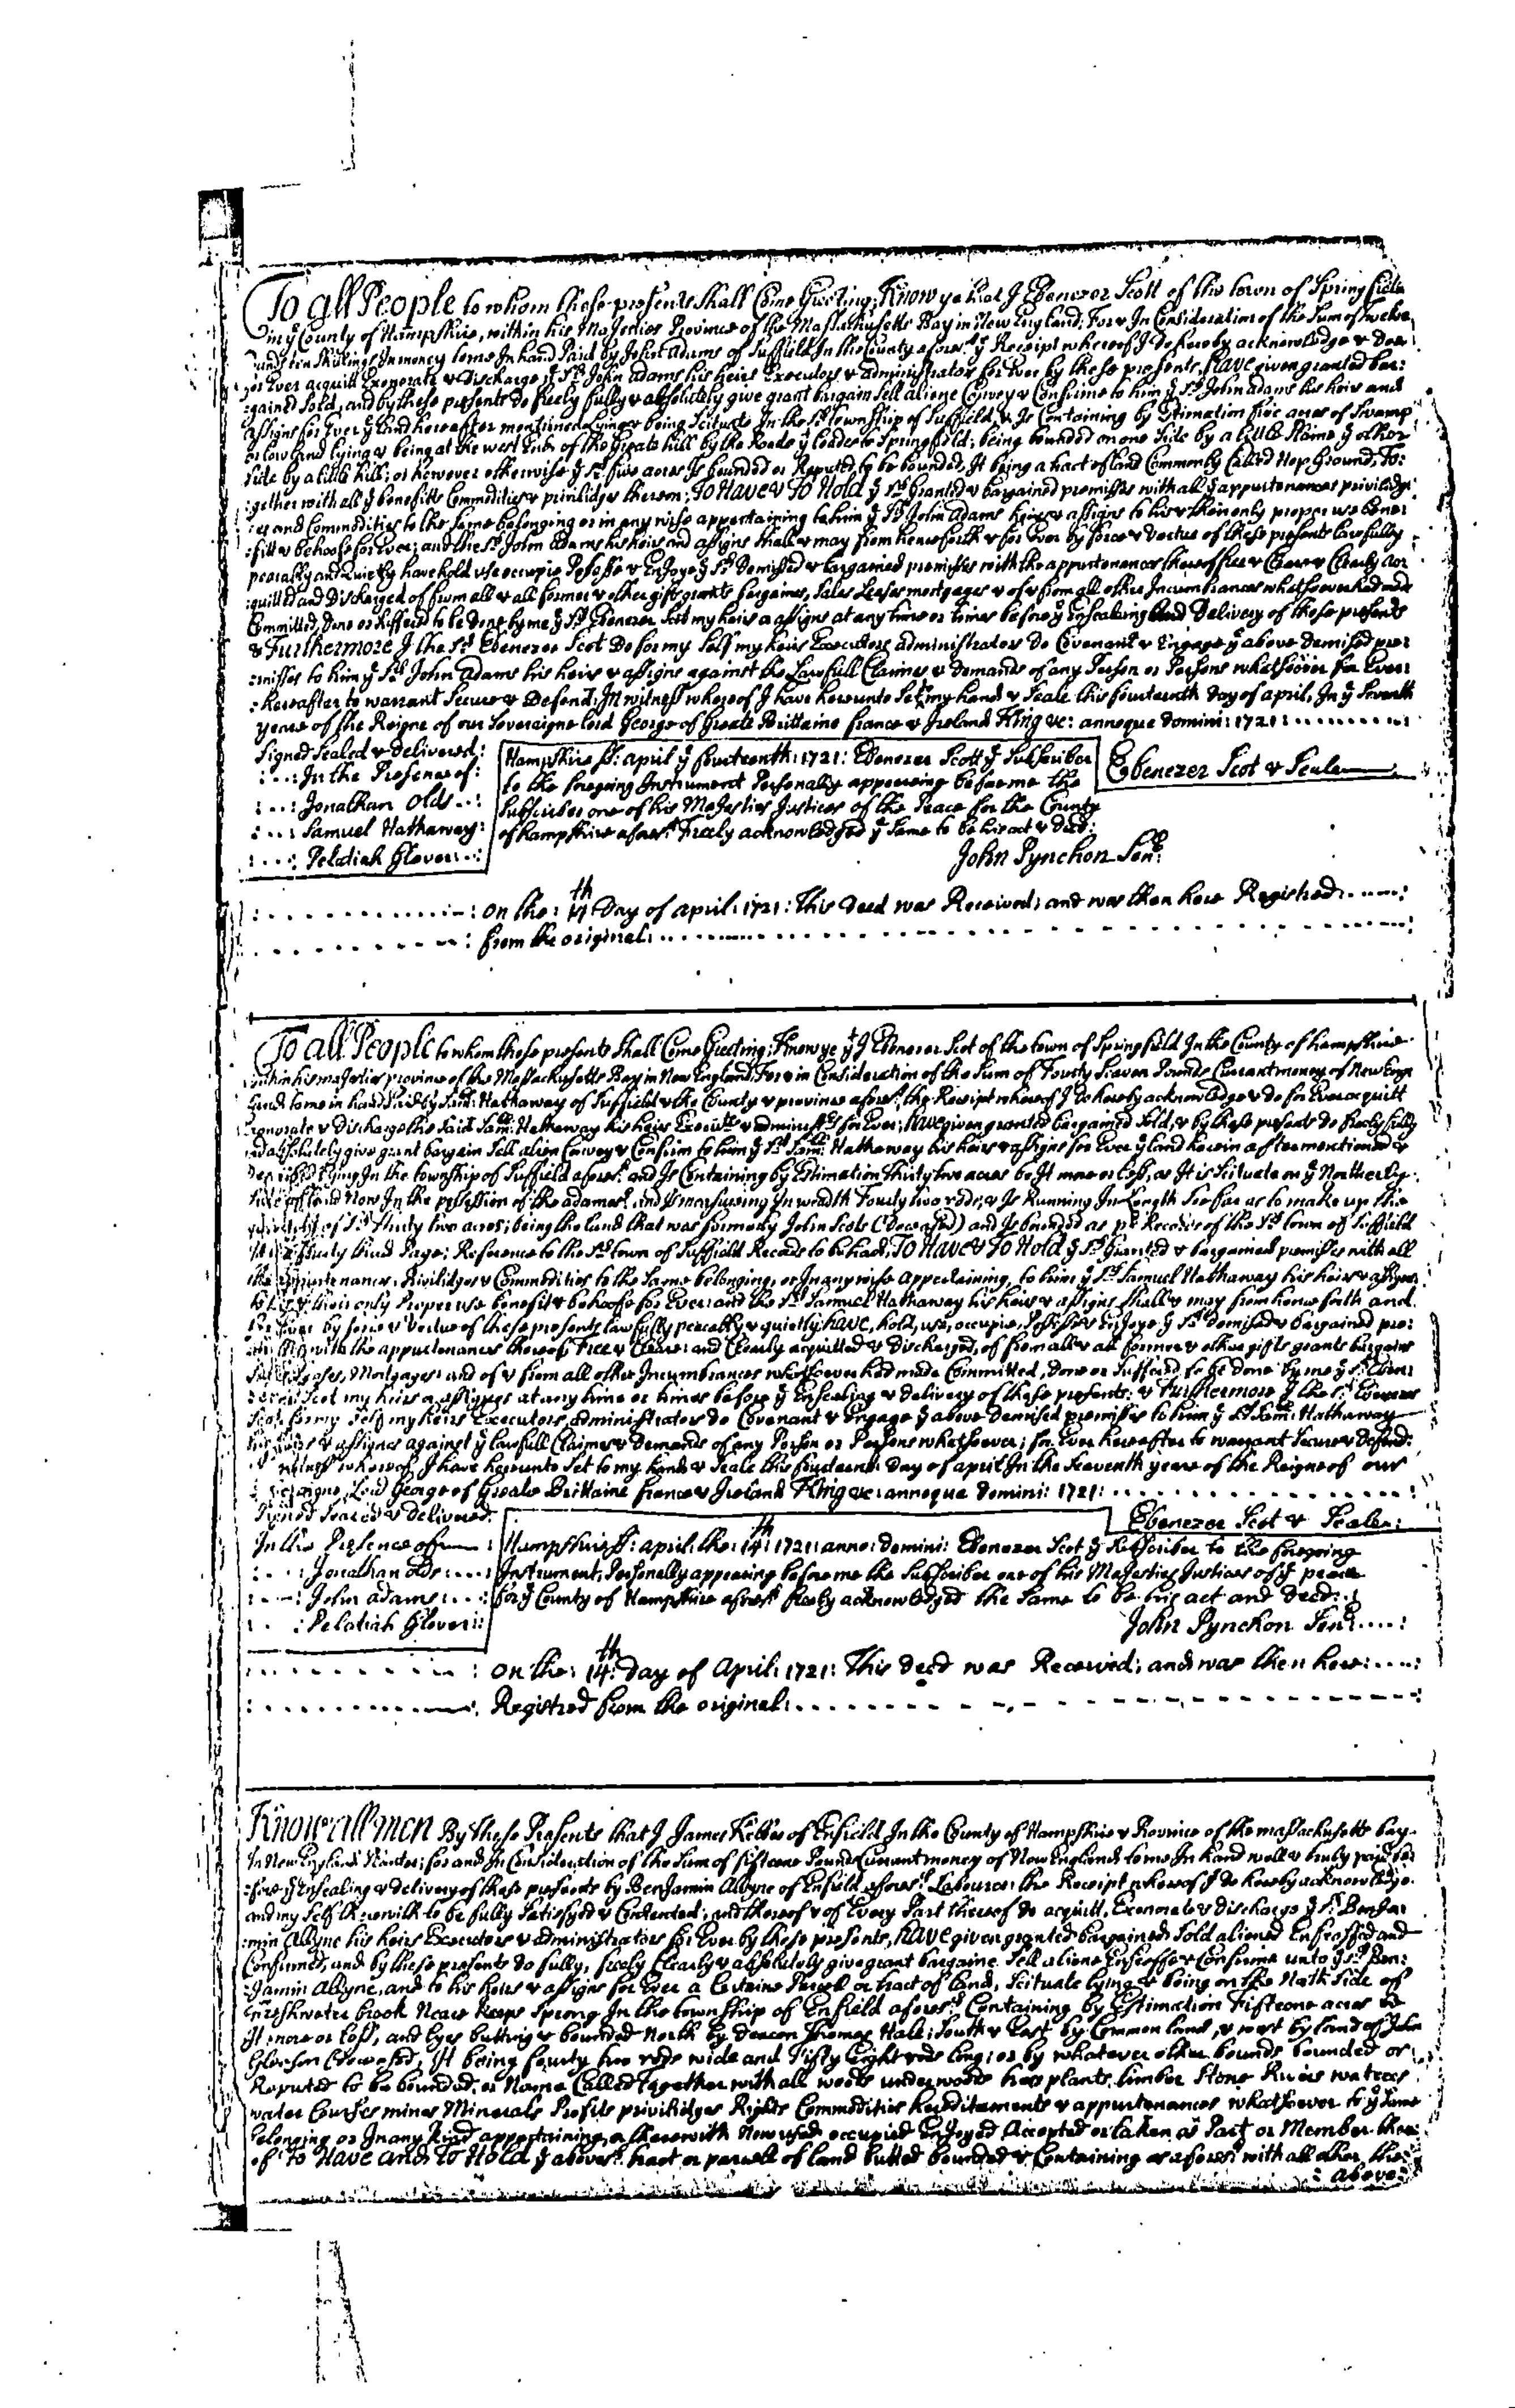 To all People to whom these presents Shall Come Greeting; Know ye that I Ebenezer Scott of the town of Spring field
in ye County of Hampshire, within his Majesties Province of the Massachusetts Bay in New England: For & In Consideration of the Sum of twelve
and ten Shillings In money to me In hand Paid by John Adams of Suffield In the County afores:d ye Receipt whereof I do hereby acknowledge & doe
for Ever acquitt Exonorate & discharge ye Sd John adams his heirs Executors & administrators for Ever by these presents, HAVE given granted bar:
:gained Sold, and by these presents do freely fully & absolutely give grant bargain Sell aliene Convey & Confirme to him ye Sd John adams his heirs and
assigns for Ever ye land hereafter mentioned Lying & being Scituate In the Sd township of Suffield, & Is Containing by Estimation five acres of Swamp
or low land lying & being at the west End of the Greate hill by the Roade yt leades to Springfield; being bounded on one Side by a little Plaine ye other
side by a little hill; or however otherwise ye Sd five acres Is bounded or Reputed to be bounded, It being a tract of land Commonly Called Hop Ground; To:
:gether with all ye benefitts Commodities & privilidges thereon; To Have & To Hold ye Sd Granted & bargained premisses with all ye appurtenances privilidg:
:es and Commodities to the Same belonging or in any wise appertaining to him ye Sd John Adams heires & assigns to his & their only proper use bene:
:fitt & behoofe for Ever; and the Sd John Adams his heirs and assigns Shall & may from henceforth & for Ever by force & vertue of these presents lawfully
peceably and Quietly have hold use occupie Possesse & Enjoye ye Sd Demissed & bargained premisses with the appurtenances thereof free & Cleare & Clearly ac:
:quitted and Discharged of from all & all former & other gifts grants bargaines, Sales Leases mortgages & of & from all other Incumbrances whatsoever had made
Committed, Done or Suffered to be done by me ye Sd Ebenezer Scot my heirs or assigns at any time or times before ye Ensealing and Delivery of these presents
& Furthermore I the Sd Ebenezer Scot Do for my Self my heirs Executors administrators do Covenant & Engage ye above Demised pre:
:misses to him ye Sd John Adams his heirs & assigns against the Lawfull Claimes & demands of any Person or Persons whatsoever for Ever
:hereafter to warrant Secure & Defend; In witness whereof I have hereunto Set my hand & Seale this fourteenth Day of april, In ye Seventh
yeare of the Reigne of our Soveraigne lord George of Greate Brittaine france & Ireland King &c: annoque Domini: 1721:
Signed Sealed & delivered:
:...: In the Presence of:
:...: Jonathan Olds ..:
:...: Samuel Hathaway:
:...: Pelatiah Glover:..:
Hampshire Ss: april ye fourteenth: 1721: Ebenezer Scott ye Subscriber
to the foregoing Instrument Personally appeareing before me the
Subscriber one of his Majesties Justices of the Peace for the County
of hampshire afores:d Freely acknowledged ye Same to be his act & deed:
Ebenezer Scot & Seale
John Pynchon Senr:
: on the: 14th Day of april: 1721: This deed was Received; and was then here Registred:
: from the original:
To all People to whom these presents Shall Come Greeting; Know ye yt I Ebenezer Scot of the town of Springfield In the County of hampshire
within his majesties province of the Massachusetts Bay in New England; For & in Consideration of the Sum of Fourty Seaven Pounds Currant money of New Eng:
land to me in hand Paid by Saml: Hathaway of Suffield & the County & province afores:d, the Receipt whereof I do hereby acknowledge & do for Ever acquitt
Exonorate & discharge the Said Saml: Hathaway his heirs Executrs & administrs for Ever; HAVE given granted bargained Sold, & by these presents do freely fully
and absolutely give grant bargain Sell alien Convey & Confirm to him ye Sd Saml: Hathaway his heirs & assigns for Ever ye land herein after mentioned &
Described Lying In the township of Suffield afores:d and Is Containing by Estimation Thirty two acres be It more or less, as It is Scituate on ye Northerly
Side of land Now In the possession of the adames: and Is measureing In weadth Fourty two rods, & Is Running In Length So far as to make up the
quantity of Sd thirty two acres; being the land that was formerly John Scots (Deceased) and Is bounded as pr Records of the Sd town of Suffield
thirty third Page; Reference to the Sd town of Suffield Records to be had; To Have & To Hold ye Sd Granted & bargained premisses with all
the appurtenances, Privilidges & Commodities to the Same belonging, or In any wise appertaining, to him ye Sd Samuel Hathaway his heirs & assigns
to his & their only Proper use benefit & behoofe for Ever: and the Sd Samuel Hathaway his heirs & assigns Shall & may from henceforth and
for Ever by force & Vertue of these presents lawfully peceably & quietly HAVE, hold, use, occupie, Possesse & Enjoye ye Sd Demised & bargained pre:
with the appurtenances thereof Free & Cleare: and Clearly acquitted & discharged, of from all & all former & other gifts grants bargains
Sales Leases, Mortgages: and of & from all other Incumbrances whatsoever had made Committed, Done or Suffered to be done by me ye Sd Eben:
:ezer Scot my heirs or assignes at any time or times before ye Ensealing & delivery of these presents: & Furthermore I the Sd Ebenezer
Scot for my Self my heirs Executors, administrators do Covenant & Engage ye above Demised premisses to him ye Sd Saml: Hathaway
his heirs & assignes against ye lawfull Claimes & demands of any Person or Persons whatsoever; for Ever hereafter to warrant Secure & defend:
witness whereof I have hereunto Set to my hand & Seale this fourteenth day of april In the Seaventh yeare of the Reigne of our
Soveraigne Lord George of Greate Brittaine france & Ireland King &c: annoque Domini: 1721:
Signed Sealed & delivered:
In the Presence of:
:...: Jonathan olds:....:
:...: John adams:...:
:...: Pelatiah Glover::
Ebenezer Scot & Seale:
Hampshire Ss: april: the: 14th: 1721: anno: domini: Ebenezer Scot ye Subscriber to the foregoing
Instrument, Personally appearing before me the Subscriber one of his Majesties Justices of ye peace
for ye County of Hampshire afores:d freely acknowledged the Same to be his act and deed::
John Pynchon Senr:....:
: on the: 14th: Day of April: 1721: This deed was Received; and was then here:....:
: Registred from the original:
Know all men By these Presents that I James Kebbe of Enfield In the County of Hampshire & Province of the massachusetts bay
In New England for and In Consideration of the Sum of fifteene Pounds Currant money of New England to me In hand well & truly paid be:
:fore ye Ensealing & delivery of these presents by Benjamin Allyne of Enfield afores:d Labourer: the Receipt whereof I do hereby acknowledge
and my Self therewith to be fully Satisfyed & Contented; and thereof & of Every Part thereof do acquitt, Exonorate & discharge ye Sd Benja:
:min Allyne his heirs Executors & administrators for Ever by these presents, HAVE given granted bargained Sold aliened Enfeoffed and
Confirmed, and by these presents do fully, freely Clearly & absolutely give grant bargaine Sell aliene Enfeoffe & Confirme unto ye Sd Ben:
:Jamin Allyne, and to his heirs & assigns for Ever a Certaine Parcell or tract of land, Scituate lying & being on the North Side of
Freshwater brook Neare Spring In the township of Enfield afores:d Containing by Estimation Fifteene acres be
It more or less, and lyes butting & bounded North by deacon Thomas Hale; South & East by Common land, & west by land of John
Gleeson Deceased, It being fourty two rods wide and Fifty Eight rods long; or by whatever other bounds bounded or
Reputed to be bounded, or Name Called Together with all woods underwoods trees plants, timber Stone Rivers watters
water Courses mines Minerals Profits privilidges Rights Commodities Hereditaments & appurtenances whatsoever to ye Same
belonging or In any kind appertaining, or therewith Now used occupied Enjoyed Accepted or taken as Part or Member there:
:of To Have and To Hold ye aboves:d tract or parcell of land butted bounded & Containing as afores:d with all other the:
: above: